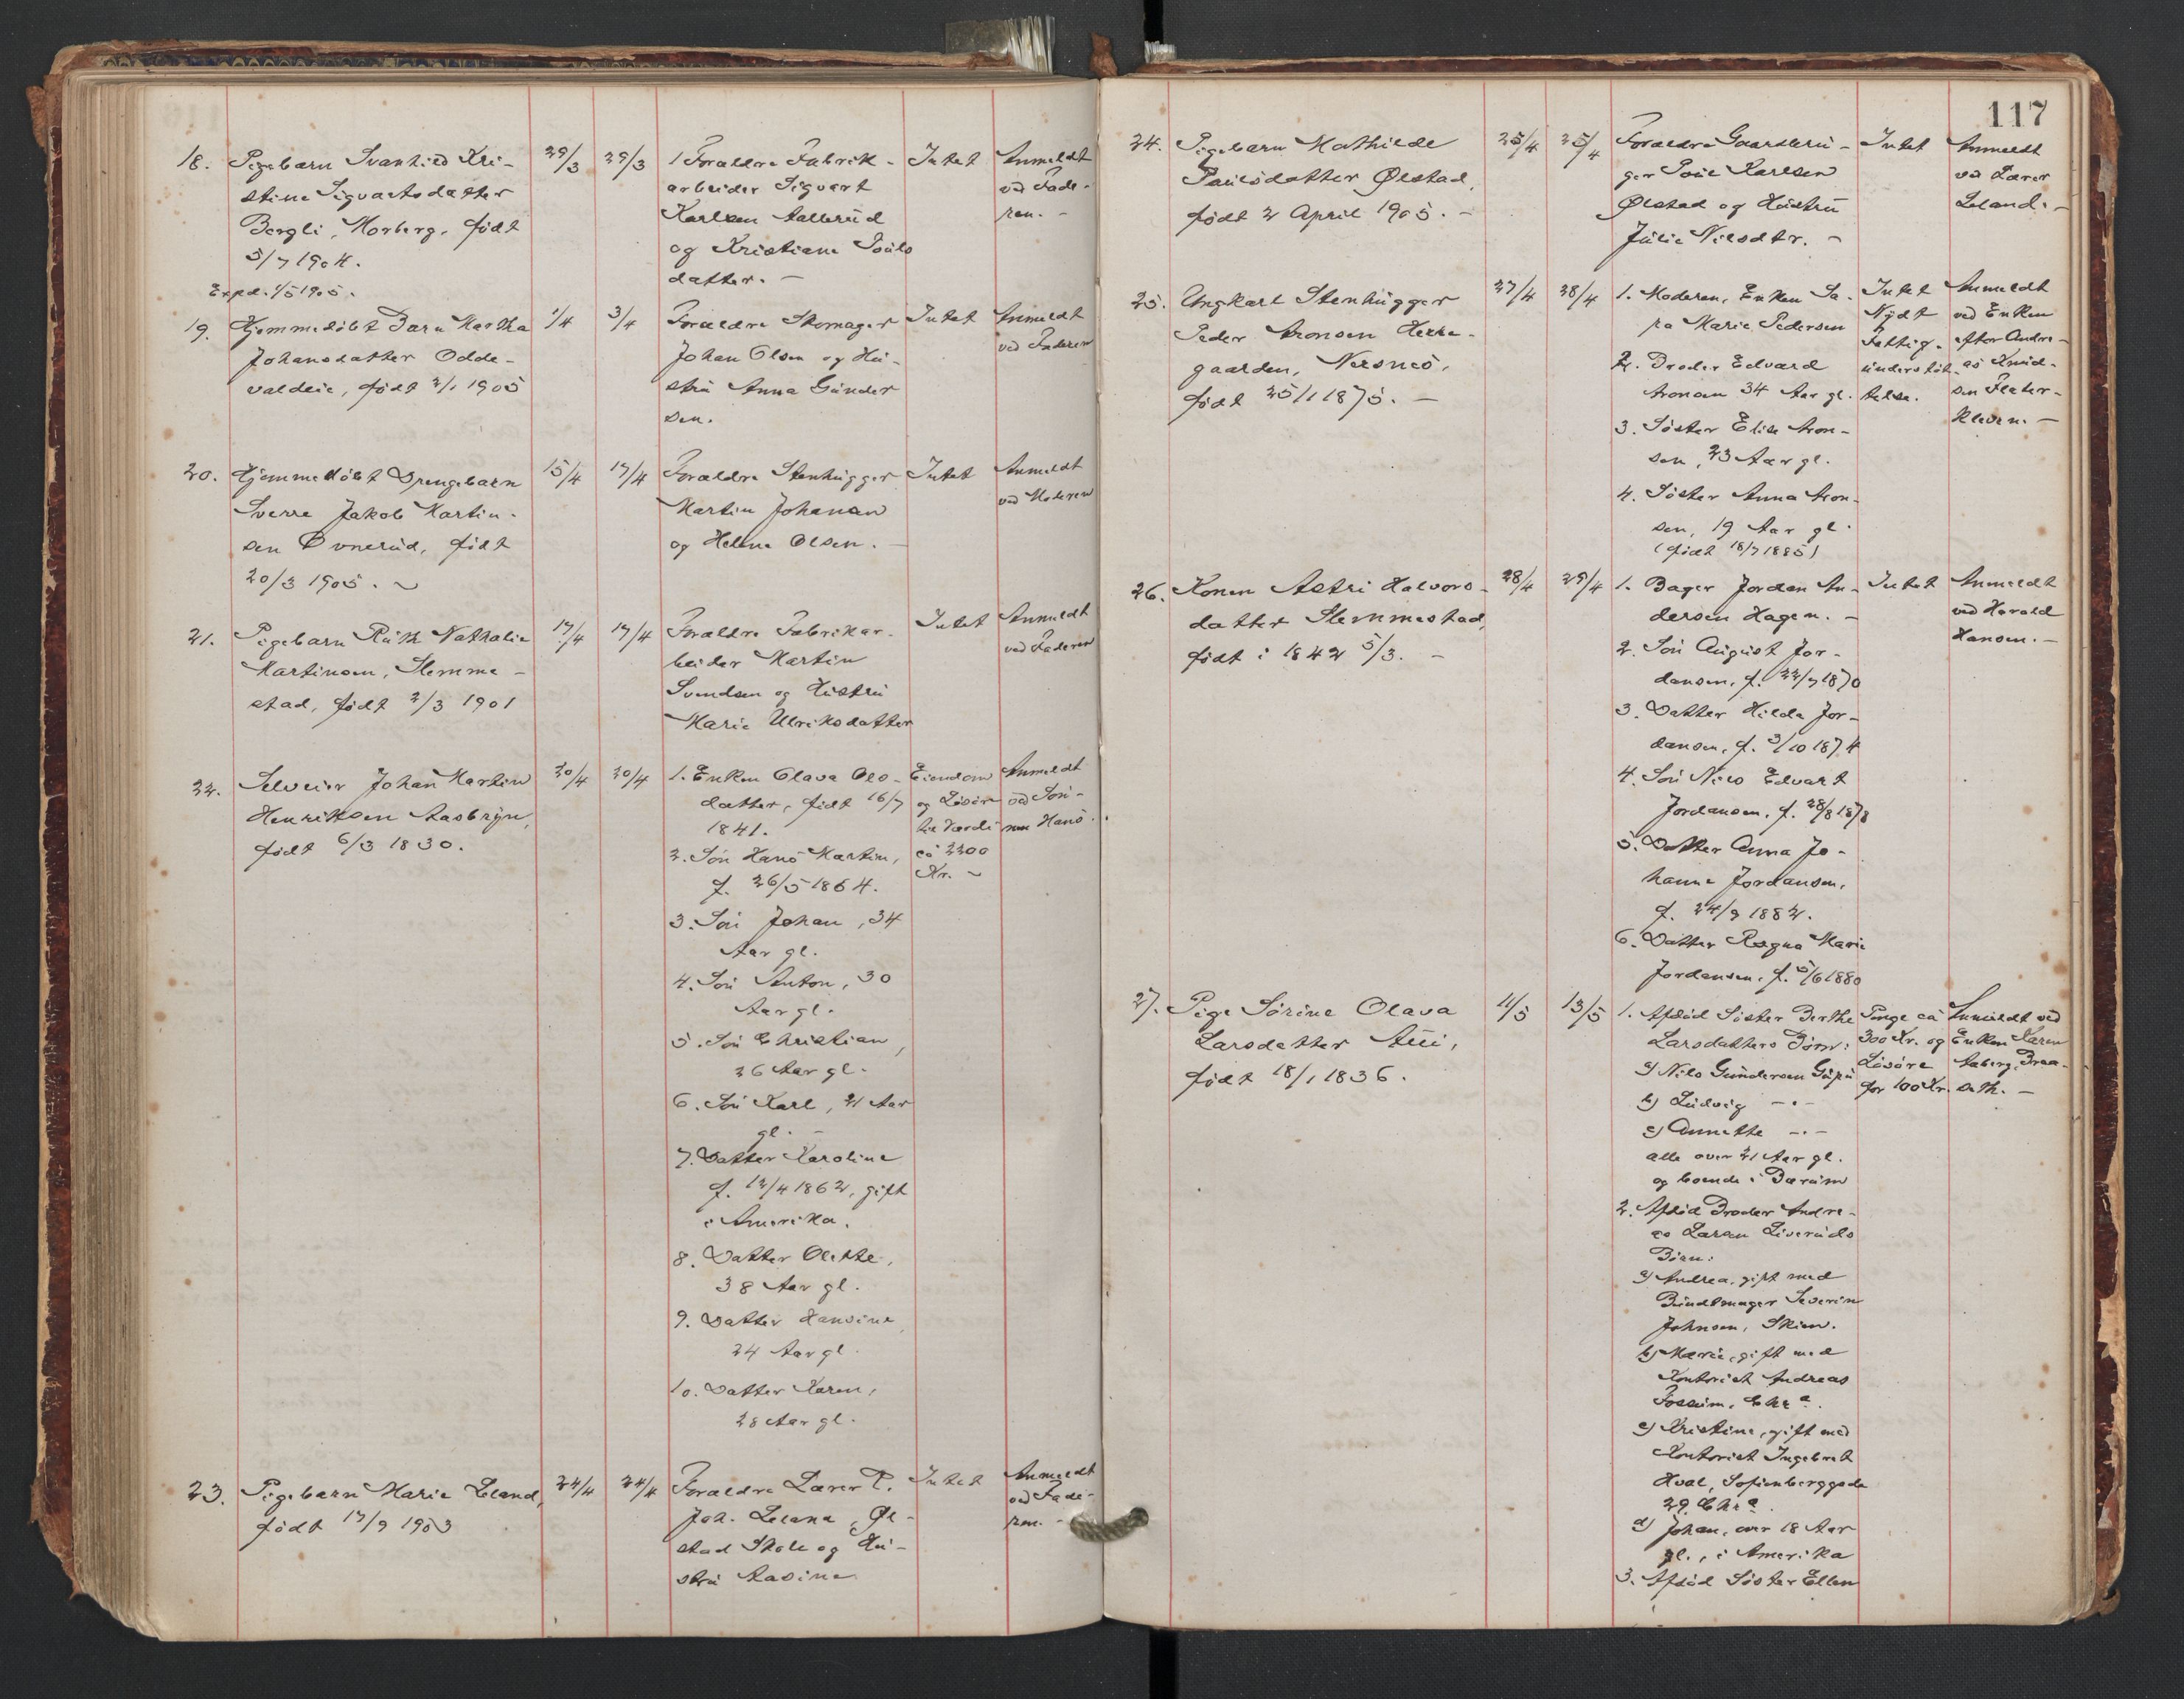 18. Pigebarn Svanhild Kri-
stine Sigvartsdatter
Bergli, Morberg, født
5/7 1904.
Expd. 1/5 1905.
29/3
29/3
1 Forældre Fabrik-
arbeider Sigvart
Karlsen
og Kristiane Pouls
datter. —
Intet
Anmeldt
ved Fade-
ren. —
19. Hjemmedøbt Barn Martha
Johansdatter Odde-
valdeie, født 2/1 1905
1/4
3/4
Forældre Skomager
Johan Olsen og Hu-
stru Anna Gunder
sen.
Intet
Anmeldt
ved Faderen
20. Hjemmedøbt Drengebarn
Sverre Jakob Martin-
sen Ovnerud, født
20/3 1905. ~
15/4
17/4
Forældre Stenhugger
Martin Johansen
og Helene Olsen. —
Intet
Anmeldt
ved Moderen
21. Pigebarn Ruth Nathalie
Martinsen, Slemme-
stad, født 2/3 1901
17/4
17/4
Forældre Fabrikar-
beider Martin
Svendsen og Hustru
Marie Ulriksdatter
Intet
Anmeldt
ved Faderen
22. Selveier Johan Martin
Henriksen Aasbryn,
født 6/3 1830.
20/4
20/4
1. Enken Olava Ols-
datter, født 16/7
1841.
2. Søn Hans Martin,
f. 26/5 1864.
3. Søn Johan, 34
Aar gl.
4. Søn Anton, 30
Aar gl.
5. Søn Christian,
26 Aar gl.
6. Søn Karl, 21 Aar
gl. —
7. Datter Karoline
f. 12/4 1862, gift
i Amerika.
8. Datter Olette,
38 Aar gl.
9. Datter Hansine,
24 Aar gl.
10. Datter Karen,
28 Aar gl.
Eiendom
og Løsøre
til Værdi
ca 2200
Kr. ~
Anmeldt
ved Søn-
nen Hans.
23. Pigebarn Marie Leland,
født 17/9 1903
24/4
24/4
Forældre Lærer P.
Joh. Leland, Øl-
stad Skole og Hu-
stru Aasine
Intet
Anmeldt
ved Fade-
ren. —
117
24. Pigebarn Mathilde
Paulsdatter Ølstad,
født 2 April 1905. —
25/4
25/4
Forældre Gaardbru-
ger Poul Karlsen
Ølstad og Hustru
Julie Nilsdtr. —
Intet
Anmeldt
ved Lærer
Leland. —
25. Ungkarl Stenhugger
Peder Aronsen Herre-
gaarden, Nersnes,
født 25/1 1875. —
27/4
28/4
1. Moderen, Enken Sa-
ra Marie Pedersen
2. Broder Edvard
Aronsen 34 Aar gl.
3. Søster Elise Aron-
sen, 23 Aar gl.
4. Søster Anna Aron-
sen, 19 Aar gl.
(født 18/7 1885)
Intet
Nydt
Fattig-
understøt-
telse.
Anmeldt
ved Enken
efter Andre-
as Knud-
sen
26. Konen Astri Halvors-
datter Slemmestad,
født i 1842 5/3. —
28/4
29/4
1. Bager Jordan An-
dersen Hagen. —
2. Søn August Jor-
dansen, f. 22/7 1870
3. Datter Hilda Jor-
dansen, f. 3/10 1874
4. Søn Nils Edvart
Jordansen, f. 28/8 1878
5. Datter Anna Jo-
hanne Jordansen,
f. 24/9 1882.
6. Datter Ragna Marie
Jordansen, f. 5/6 1880
Intet
Anmeldt
ved Harald
Hansen. —
27. Pige Sørine Olava
Larsdatter Aui,
født 18/1 1836.
11/5
13/5
1. Afdød Søster Berthe
Larsdatters Børn:
a) Nils Gundersen
b) Ludvig — " —
c) Annette — " —
alle over 21 Aar gl.
og boende i Bærum
2. Afdød Broder Andre-
as Larsen Liveruds
Børn:
a) Andrea, gift med
Bundtmager Severin
Johnsen, Skien.
b) Marie, gift med
Kontorist Andreas
Fossum, Chra.
c) Kristine, gift med
Kontorist Ingebret
Hval, Sofienberggade
29 Chra.
d) Johan, over 18 Aar
gl., i Amerika
3. Afdød Søster Ellen
Penge ca
300 Kr. og
Løsøre
for 100 Kr.
Anmeldt ved
Enken Karen
Aaberg, Braa-
seth. —